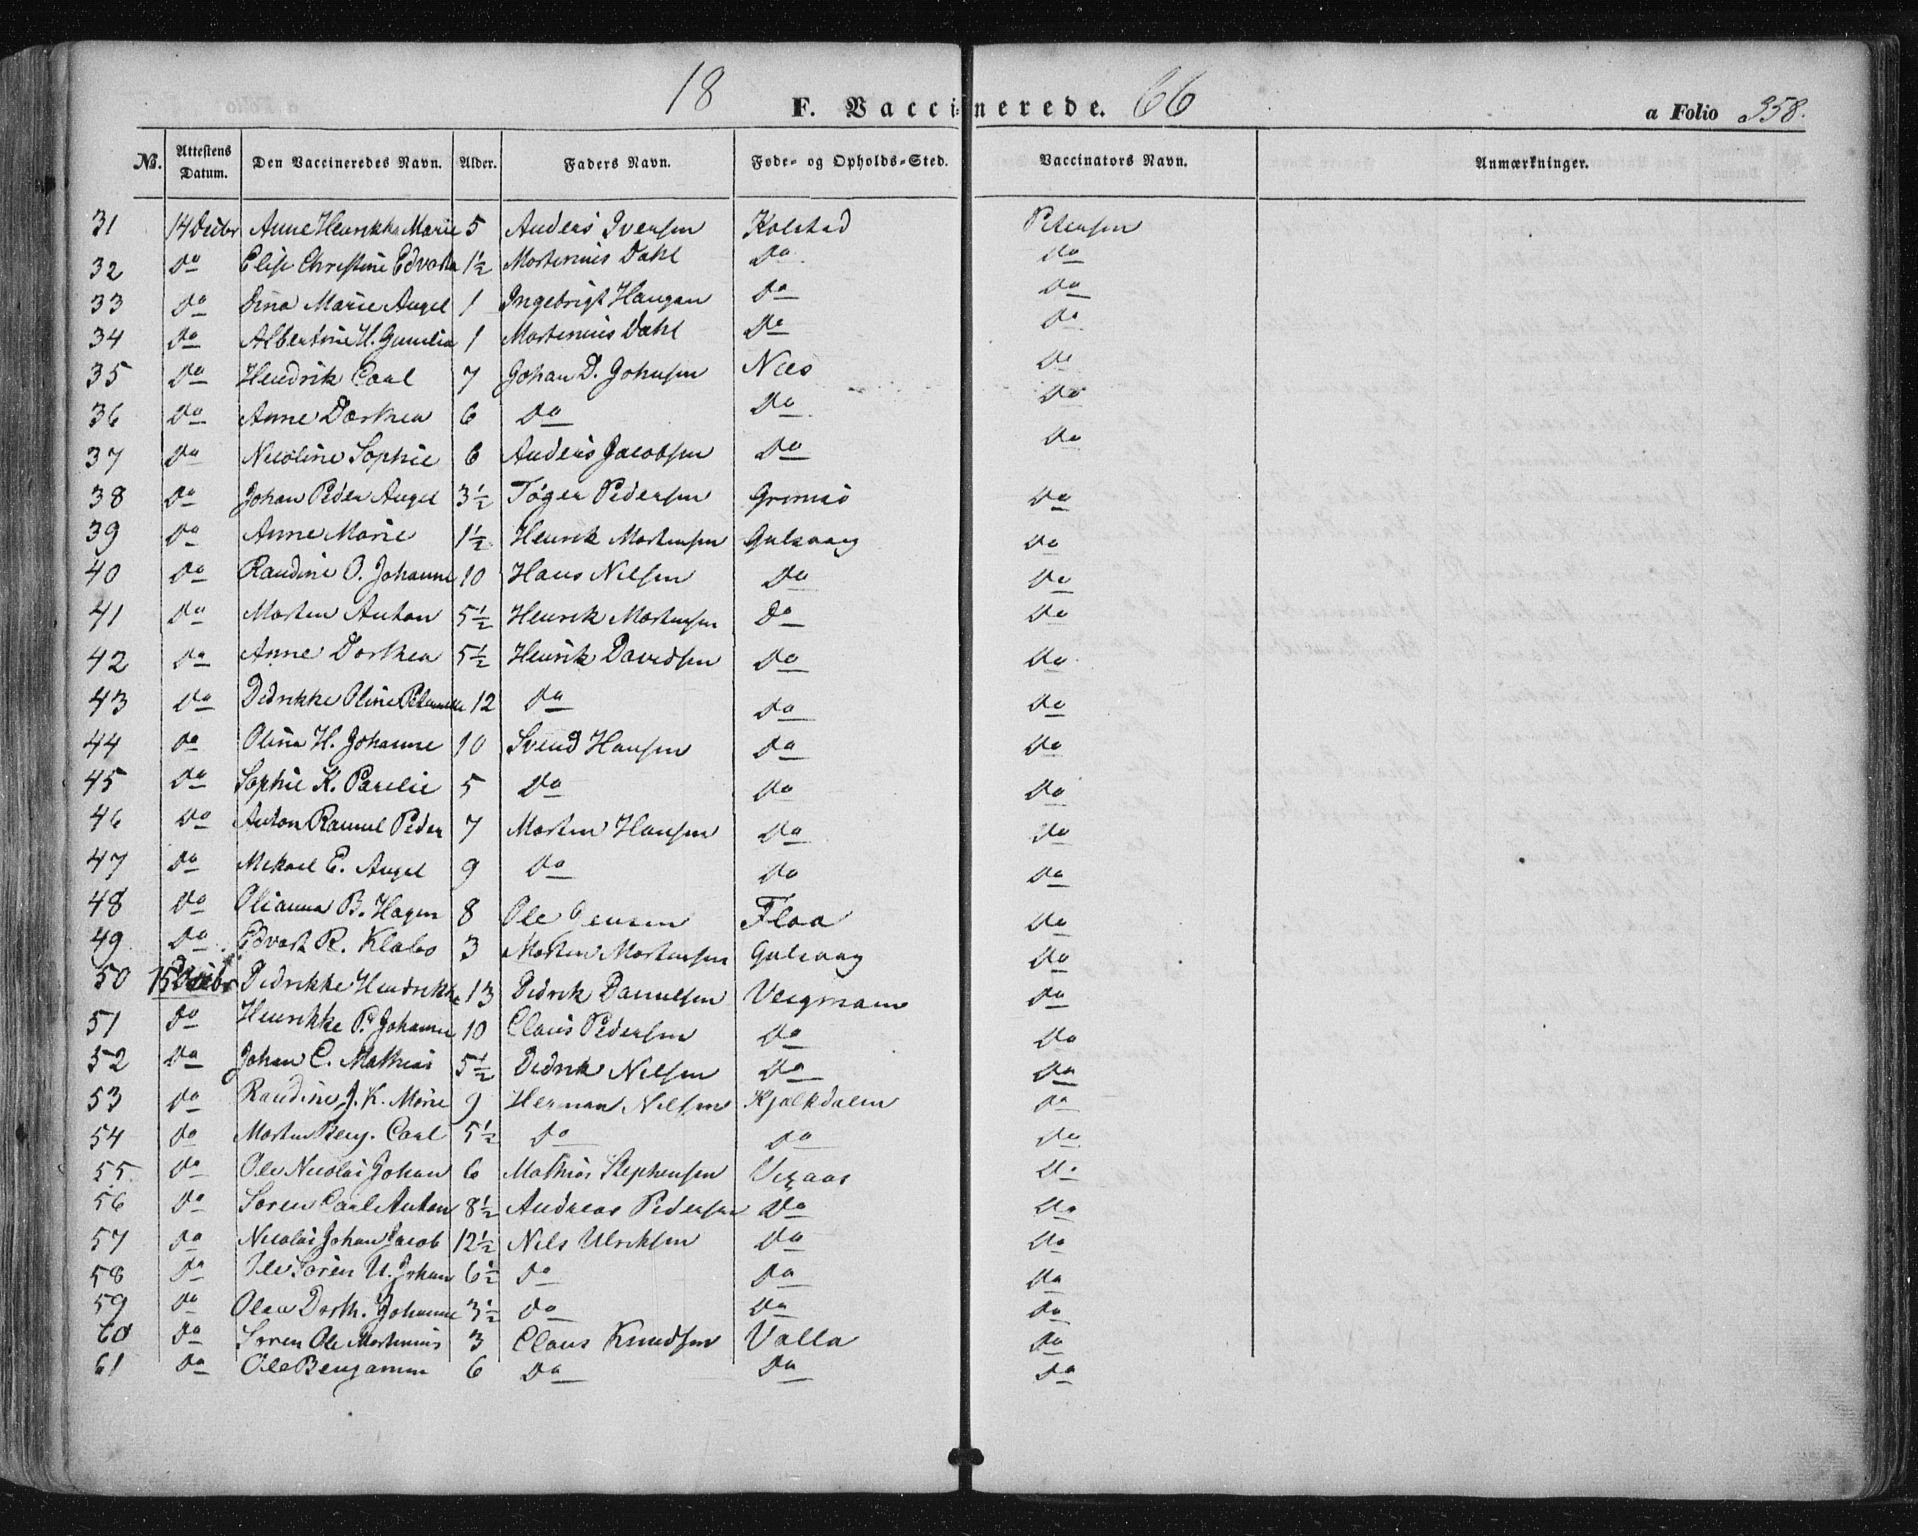 18 F. Vaccinerede. 66 a Folio 358.
No. Attestens Datum. Den Vaccineredes Navn. Alder. Faders Navn. Føde- og Opholds-Sted. Vaccinators Navn. Anmærkninger.
31 14 Decbr Anne Henrikke Marie 5 Anders Iversen Kolstad Petersen
32 Do Elise Christine Edvarda 1½ Mortenius Dahl Do Do
33 Do Dina Marie Angel 1 Ingebrigt Haugan Do Do
34 Do Albertine H. Gunilia 1 Mortenius Dahl Do Do
35 Do Hendrik Carl 7 Johan D. Johnsen Næs Do
36 Do Anne Dorthea 6 Do Do Do
37 Do Nicoline Sophie 6 Anders Jacobsen Do Do
38 Do Johan Peder Angel 3½ Tøger Pedersen Grimsø Do
39 Do Anne Marie 1½ Henrik Mortensen Gulsvaag Do
40 Do Randine O. Johanne 10 Hans Nilsen Do Do
41 Do Morten Anton 5½ Henrik Mortensen Do Do
42 Do Anne Dorthea 5½ Henrik Davidsen Do Do
43 Do Didrikke Oline 12 Do Do Do
44 Do Olina H. Johanne 10 Svend Hansen Do Do
45 Do Sophie K. Parelie 5 Do Do Do
46 Do Anton Peder 7 Morten Hansen Do Do
47 Do Mekael E. Angel 9 Do Do Do
48 Do Olianna B. Hagen 8 Ole Jensen Floa Do
49 Do Edvart R. Klabo 3 Morten Mortensen Gulsvaag Do
50 15 Decbr Didrikke Hendrikke 13 Didrik Danielsen Do
51 Do Henrikke P. Johanne 10 Claus Pedersen Do Do
52 Do Johan C. Mathias 5½ Didrik Nilsen Do Do
53 Do Randine J. K. Marie 9 Herman Nilsen Kjalkdalen Do
54 Do Morten Benj. Carl 5½ Do Do Do
55 Do Ole Nicolai Johan 6 Mathias Stephensen Vigaas Do
56 Do Søren Carl Anton 8½ Andreas Pedersen Do Do
57 Do Nicolai Johan Jacob 12½ Nils Ulriksen Do Do
58 Do Ole Søren U. Johan 6½ Do Do Do
59 Do Olea Dorth. Johanne 3½ Do Do Do
60 Do Søren Ole Mortinius 3 Claus Knudsen Valla Do
61 Do Ole Benjamin 6 Do Do Do